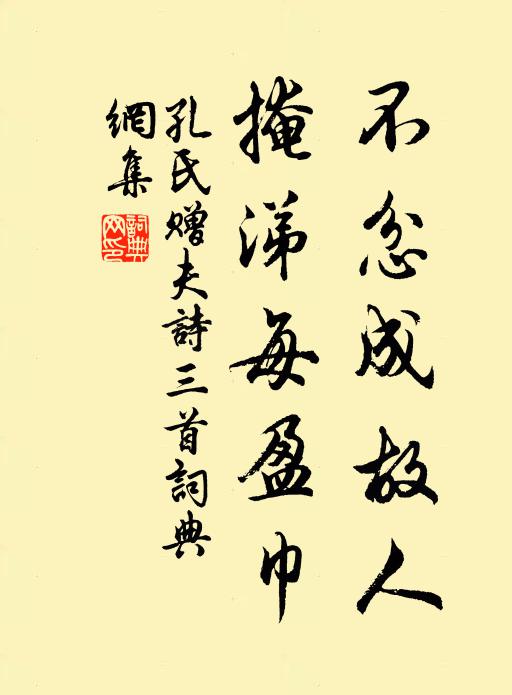 不忿成故人
掩涕每盈巾
孔氏贈夫詩三首詞典
網集
詞典
网印